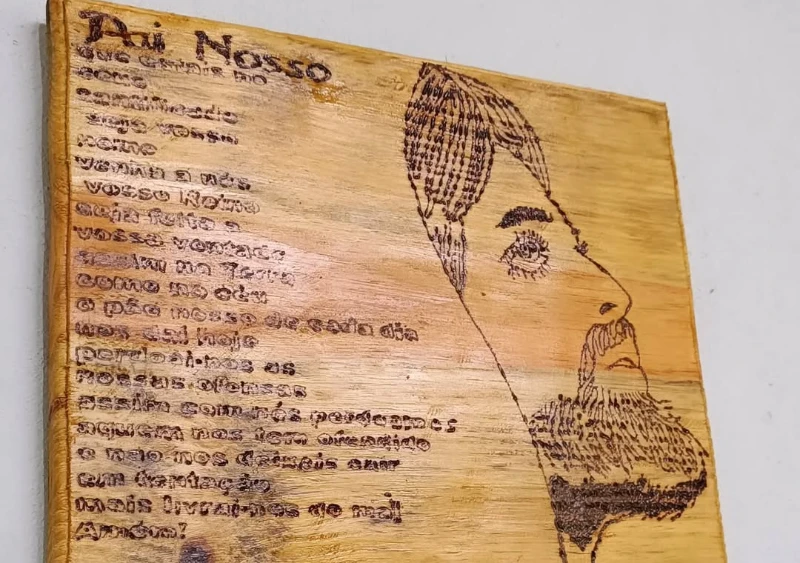 Pai Nosso
que estais no
ceus
santificado
seja vosso
nome
venha a nós
vosso Reino
seja feito a
vossa vontade
assim na Terra
como no céu
o pão nosso de cada dia
nos dai hoje
perdoai-nos as
nossas ofensas
assim com nós perdoamos
aquem nos tem ofendido
e não nos deixeis cair
em tentação
mais livrai-nos do mal
Amém!